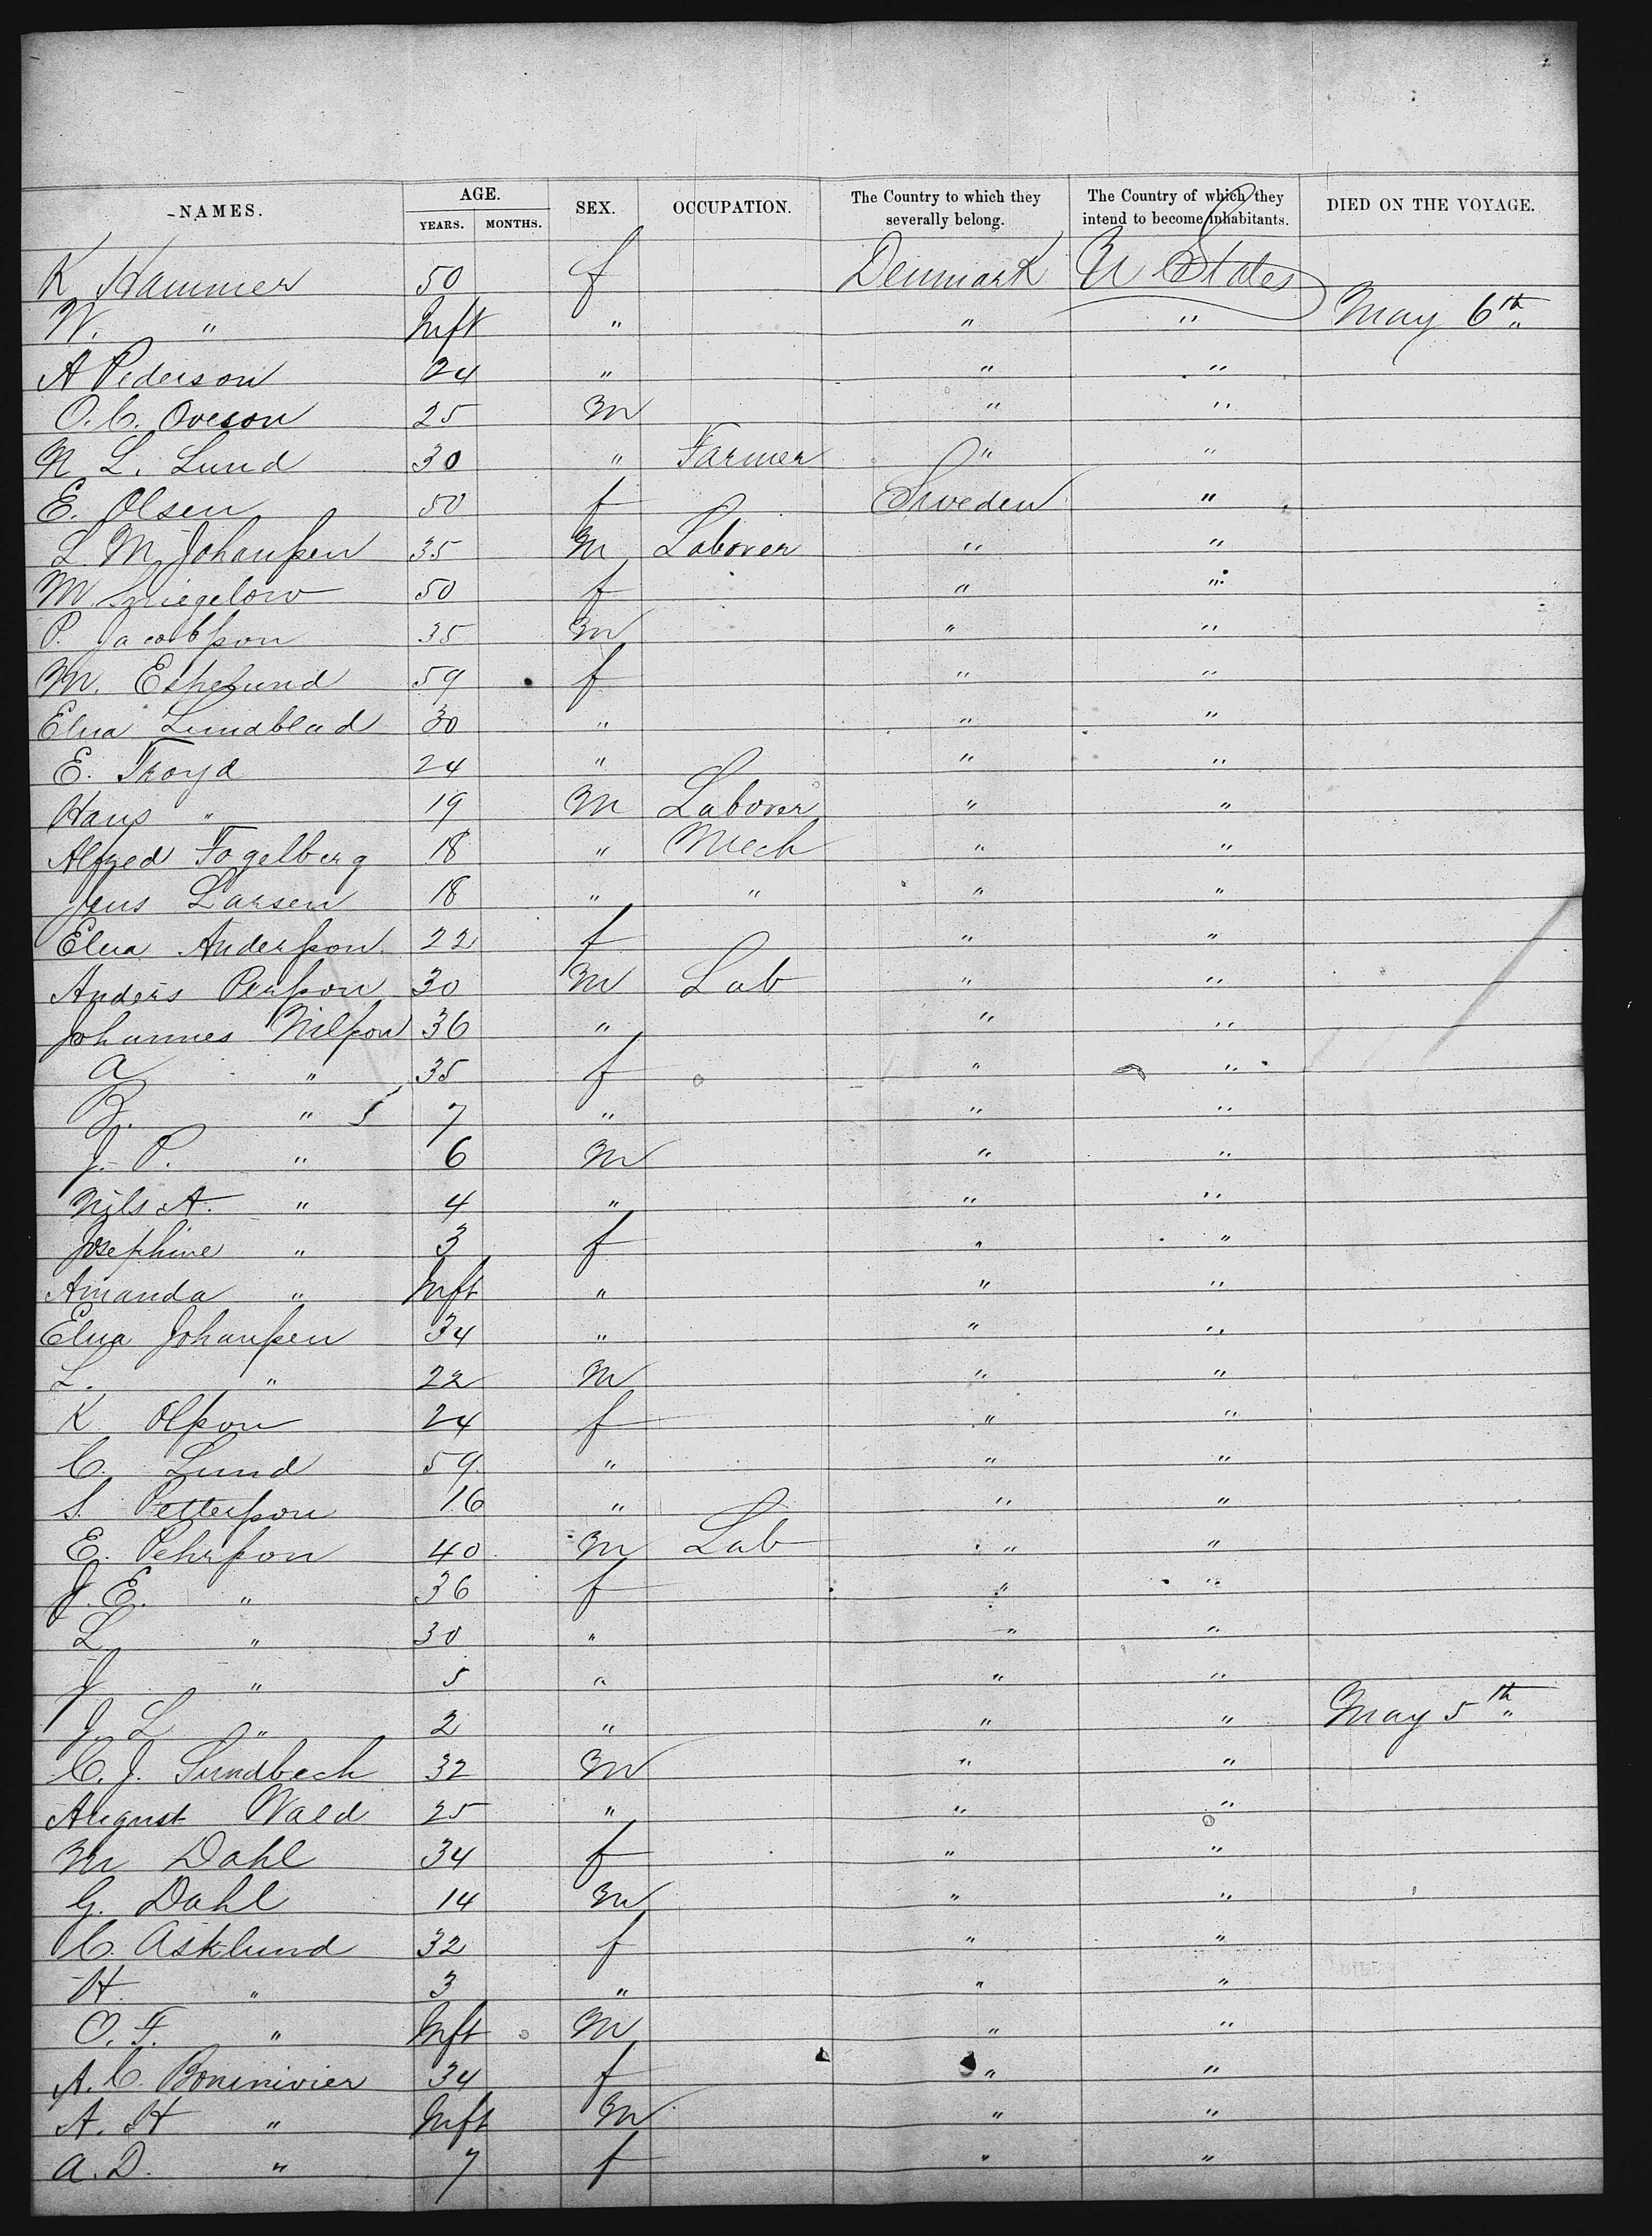 NAMES. AGE. YEARS. MONTHS. SEX. OCCUPATION. The Country to which they severally belong. The Country of which they intend to become inhabitants. DIED ON THE VOYAGE.
K Hammer 50 f Denmark U States
W. " Inft " " " May 6th "
A Pederson 24 " " "
O. C. Oveson 25 M " "
N L. Lund 30 " Farmer " "
E. Olsen 50 f Sweden "
L. M Johanßen 35 M Laborer " "
M 50 f " "
P. Jacobßon 35 M " "
M. 59 f " "
Elna Lundblad 30 " " "
E. Troyd 24 " " "
Hans " 19 M Laborer " "
Alfred Fogelberg 18 " Mech " "
Jens Larsen 18 " " " "
Elna Anderßon 22 f " "
Anders Perßon 30 M Lab " "
Johannes Nilßon 36 " " "
A " 35 f " "
B. " 7 " " "
J. P. " 6 M " "
Nils A. " 4 " " "
Josephine " 3 f " "
Amanda " Inft " " "
Elna Johanßen 34 " " "
L. " 22 M " "
K Olßon 24 f " "
C. Lund 59 " " "
S. Petterßon 16 " " "
E. Pehrßon 40 M Lab " "
J. E. " 36 f " "
L " 30 " " "
J " 5 " " "
J. L " 2 " " " May 5th "
C. J. Sundbeck 32 M " "
August Wald 25 " " "
M Dahl 34 f " "
G. Dahl 14 M " "
C. Asklund 32 f " "
H. " 3 " " "
O. F. " Inft M " "
A. C. Boninivier 34 f " "
A. H " Inft M " "
A. D. " 7 f " "